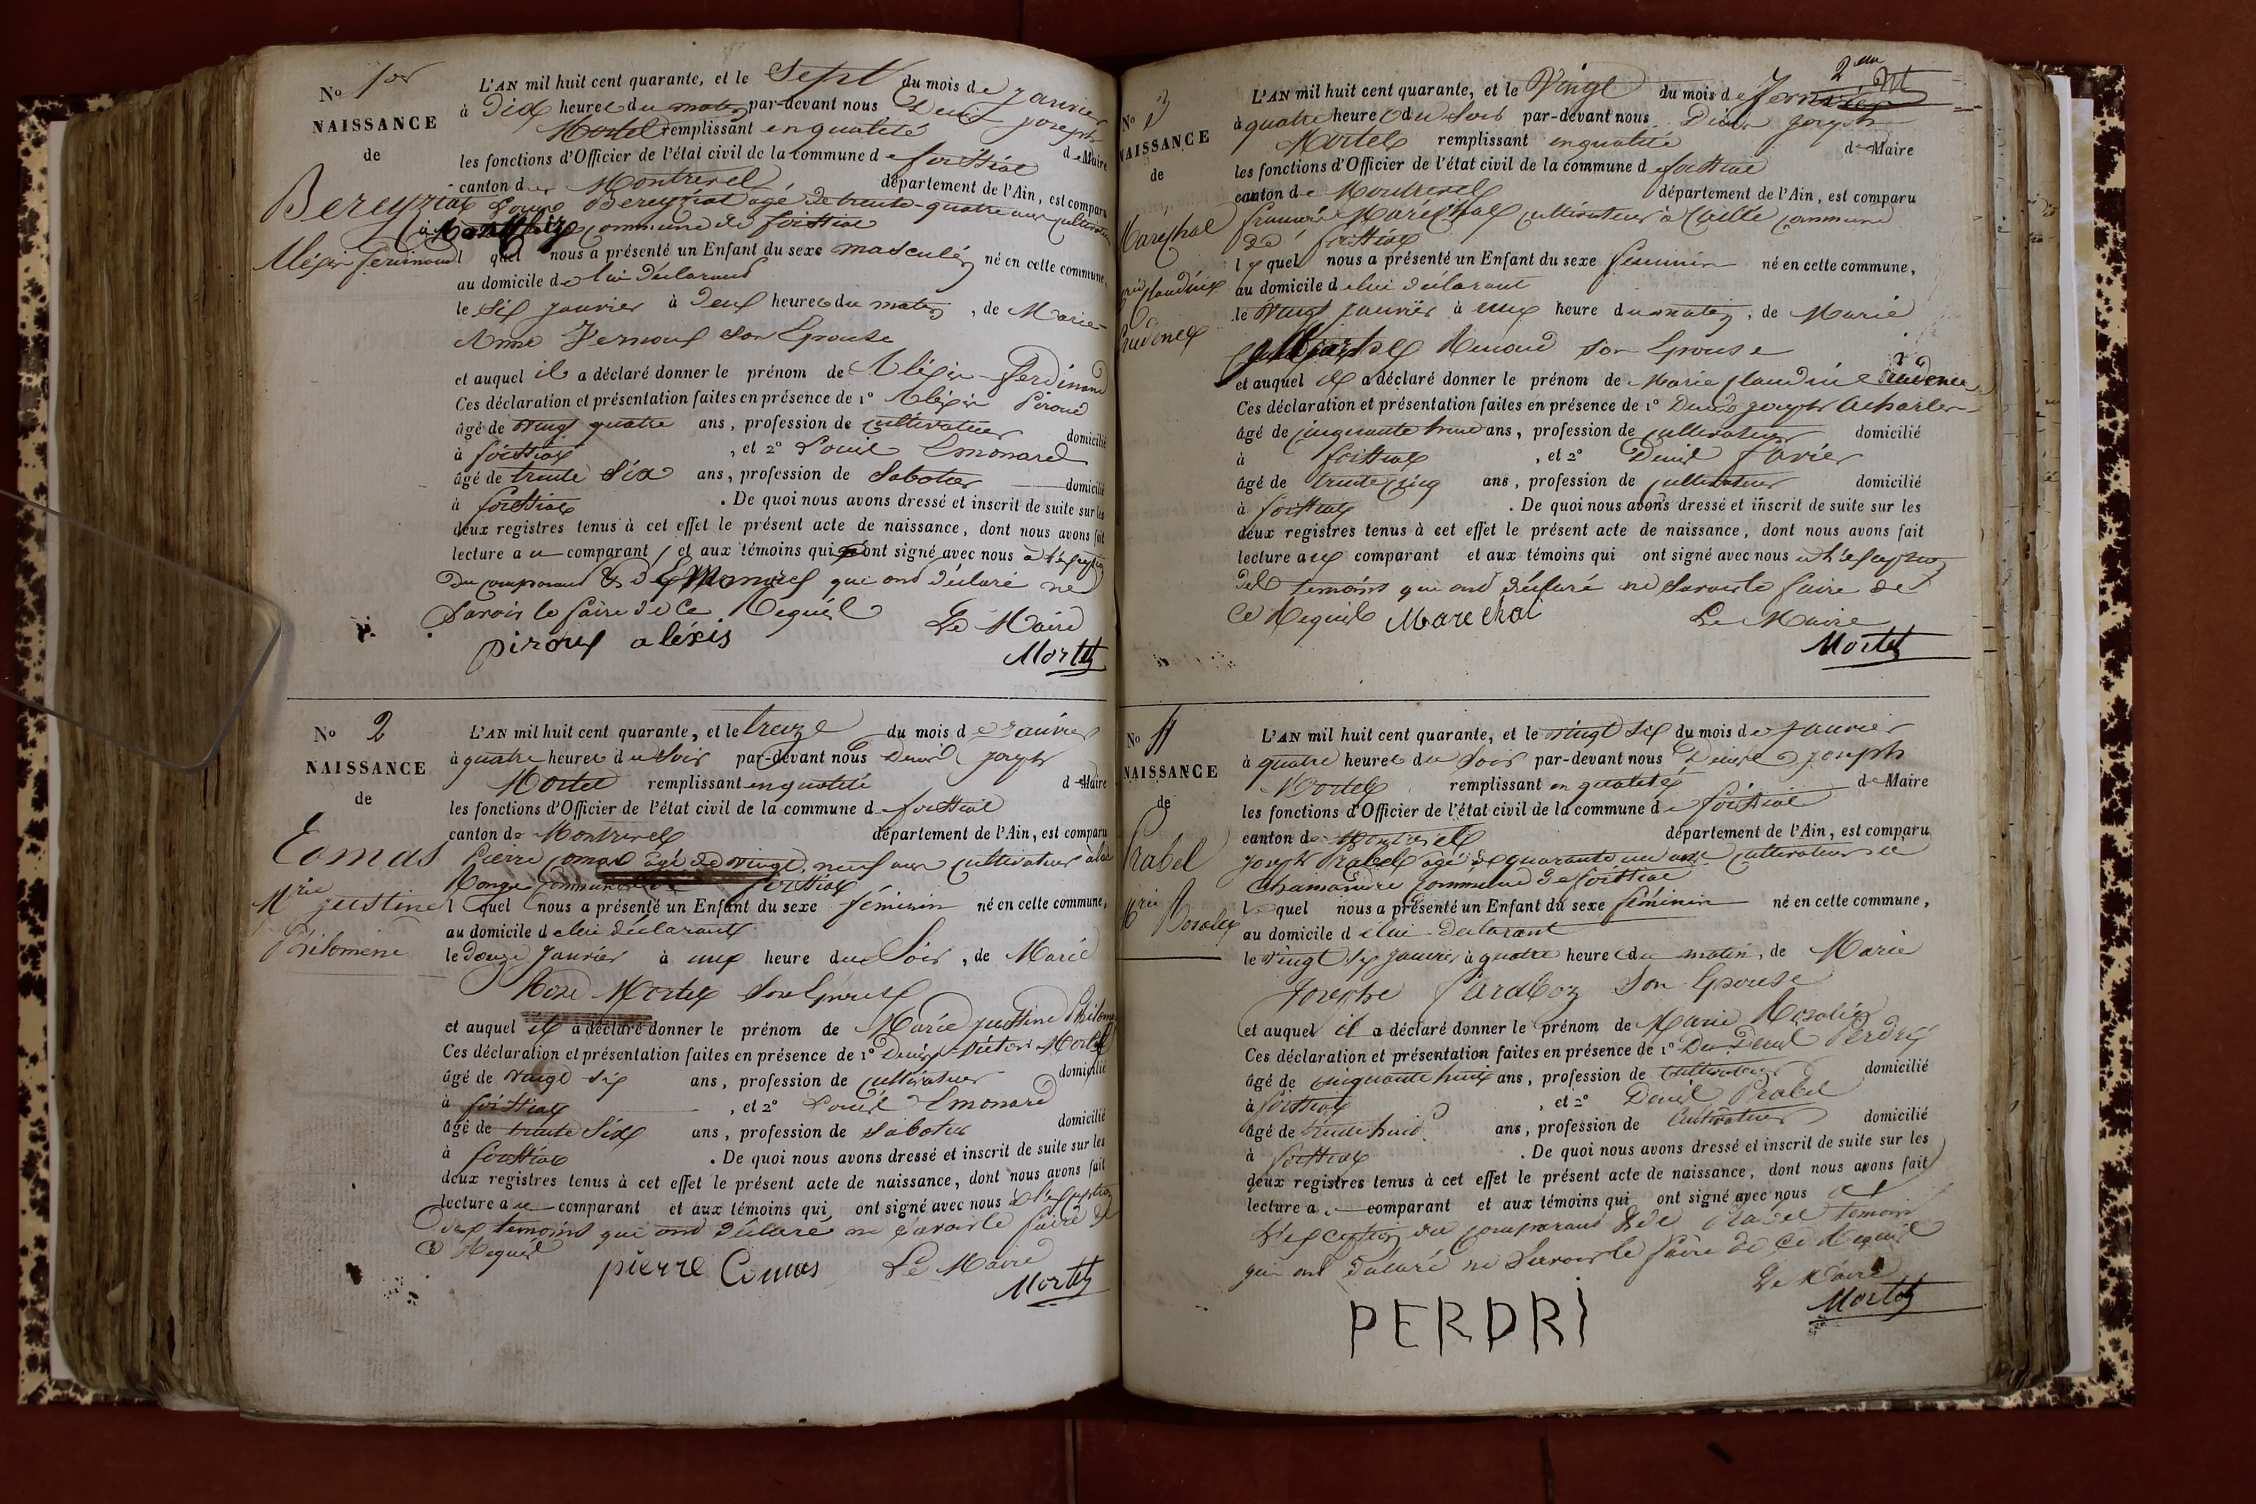 No 1er
NAISSANCE
de
Bereyziat
Aléxis ferdinand
L'AN mil huit cent quarante, et le Sept du mois de janvier
à Dix heures du matin par-devant nous Denis joseph
Mortel remplissant en qualité de Maire
les fonctions d'Officier de l'état civil de la commune de foissiat
canton de Montrevel département de l'Ain, est comparu
Louis Bereyziat agé de trente-quatre ans cultivateur
à commune de foissiat
lequel nous a présenté un Enfant du sexe masculin né en cette commune,
au domicile de lui déclarant
le six janvier à deux heures du matin, de Marie-
Anne son Epouse
et auquel il a déclaré donner le prénom de Aléxis-ferdinand
Ces déclaration et présentation faites en présence de 1o Aléxis Piroud
âgé de vingt quatre ans, profession de cultivateur domicilié
à foissiat, et 2o Louis Emonard
âgé de trente six ans, profession de sabotier domicilié
à foissiat. De quoi nous avons dressé et inscrit de suite sur les
deux registres tenus à cet effet le présent acte de naissance, dont nous avons fait
lecture au comparant et aux témoins qui ont signé avec nous à l'exception
du comparant & de qui ont déclaré ne
savoir le faire de ce Requis
piroux aléxis
Le Maire
Mortel
No 2
NAISSANCE
de
Comas
Mrie justine
Philomène
L'AN mil huit cent quarante, et le treize du mois de janvier
à quatre heures du soir par-devant nous Denis joseph
Mortel remplissant en qualité de Maire
les fonctions d'Officier de l'état civil de la commune de foissiat
canton de Montrevel département de l'Ain, est comparu
Pierre Comas agé de vingt neuf ans cultivateur à la
Ronge commune de foissiat
lequel nous a présenté un Enfant du sexe féminin né en cette commune,
au domicile de lui déclarant
le douze janvier à une heure du soir, de Marie
Rose Mortel son Epouse
et auquel il a déclaré donner le prénom de Marie justine Philomène
Ces déclaration et présentation faites en présence de 1o Denis Mortel
âgé de vingt six ans, profession de cultivateur domicilié
à foissiat, et 2o Louis Emonard
âgé de trente six ans, profession de sabotier domicilié
à foissiat. De quoi nous avons dressé et inscrit de suite sur les
deux registres tenus à cet effet le présent acte de naissance, dont nous avons fait
lecture au comparant et aux témoins qui ont signé avec nous à l'exception
des temoins qui ont déclaré ne savoir le faire de
ce Requis
pierre Comas
Le Maire
Mortel
2me
No 3
NAISSANCE
de
Marechal
Mrie Claudine
Prudence
L'AN mil huit cent quarante, et le vingt du mois de
à quatre heures du soir par-devant nous Denis joseph
Mortel remplissant en qualité de Maire
les fonctions d'Officier de l'état civil de la commune de foissiat
canton de Montrevel département de l'Ain, est comparu
Maréchal cultivateur à commune
de foissiat
lequel nous a présenté un Enfant du sexe feminin né en cette commune,
au domicile de lui déclarant
le vingt janvier à une heure du matin, de Marie
Renoud son Epouse
et auquel il a déclaré donner le prénom de Marie Claudine Prudence
Ces déclaration et présentation faites en présence de 1o Denis joseph
âgé de cinquante ans, profession de cultivateur domicilié
à foissiat, et 2o Denis
âgé de trente cinq ans, profession de cultivateur domicilié
à foissiat. De quoi nous avons dressé et inscrit de suite sur les
deux registres tenus à cet effet le présent acte de naissance, dont nous avons fait
lecture au comparant et aux témoins qui ont signé avec nous à l'exception
des temoins qui ont déclaré ne savoir le faire de
ce Requis Marechal
Le Maire
Mortel
No 4
NAISSANCE
de
Prabel
Mrie Rosalie
L'AN mil huit cent quarante, et le vingt six du mois de janvier
à quatre heures du soir par-devant nous Denis joseph
Mortel remplissant en qualité de Maire
les fonctions d'Officier de l'état civil de la commune de foissiat
canton de Montrevel département de l'Ain, est comparu
joseph Prabel agé de quarante un ans cultivateur à
Chamandré commune de foissiat
lequel nous a présenté un Enfant du sexe féminin né en cette commune,
au domicile de lui déclarant
le vingt six janvier à quatre heures du matin, de Marie
josephe son Epouse
et auquel il a déclaré donner le prénom de Marie Rosalie
Ces déclaration et présentation faites en présence de 1o Denis Perdri
âgé de cinquante huit ans, profession de cultivateur domicilié
à foissiat, et 2o Denis Prabel
âgé de trente huit ans, profession de cultivateur domicilié
à foissiat. De quoi nous avons dressé et inscrit de suite sur les
deux registres tenus à cet effet le présent acte de naissance, dont nous avons fait
lecture au comparant et aux témoins qui ont signé avec nous à
l'exception du comparant & de Prabel temoin
qui ont déclaré ne savoir le faire de ce Requis
Le Maire
Mortel
PERDRI